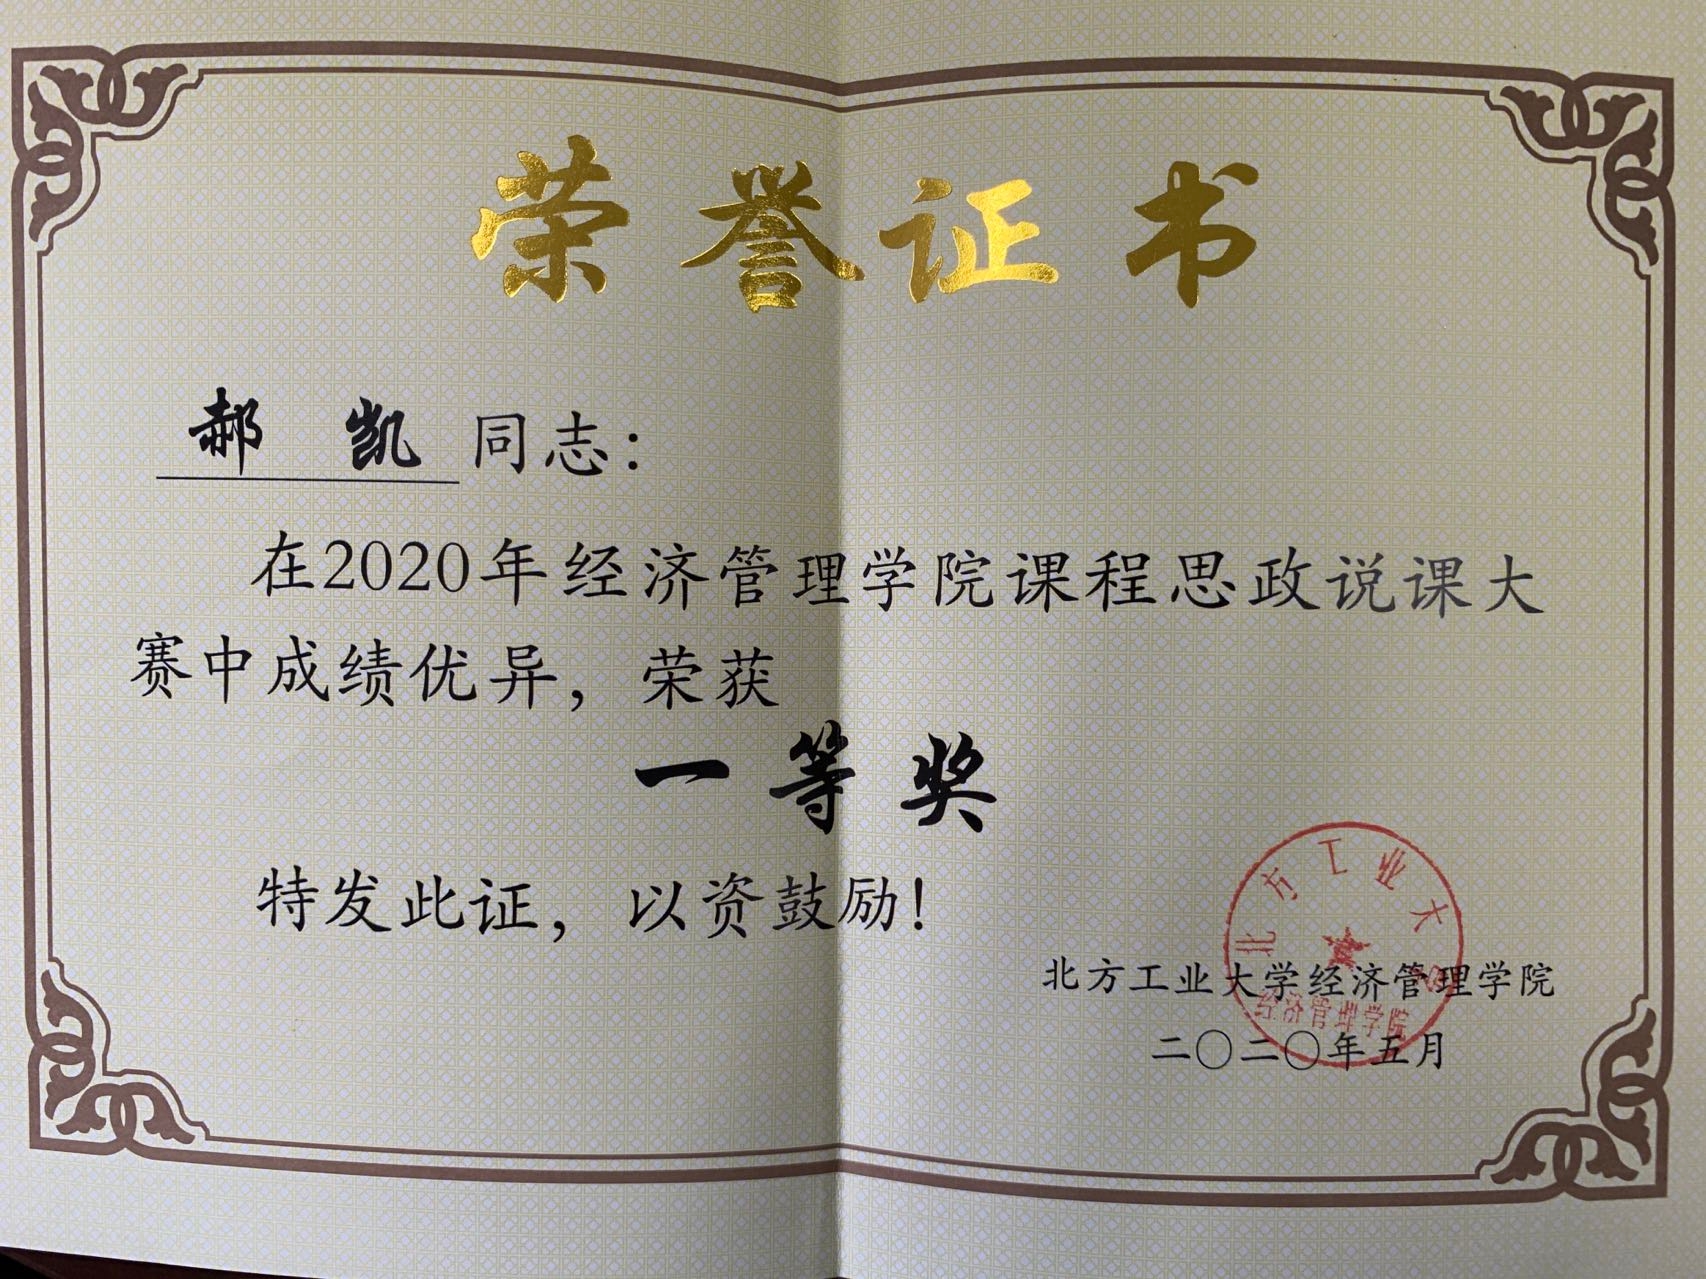 荣誉证书
郝 凯 同志：
在2020年经济管理学院课程思政说课大
赛中成绩优异，荣获
一等奖
特发此证，以资鼓励！
北方工业大学
经济管理学院
北方工业大学经济管理学院
二〇二〇年五月